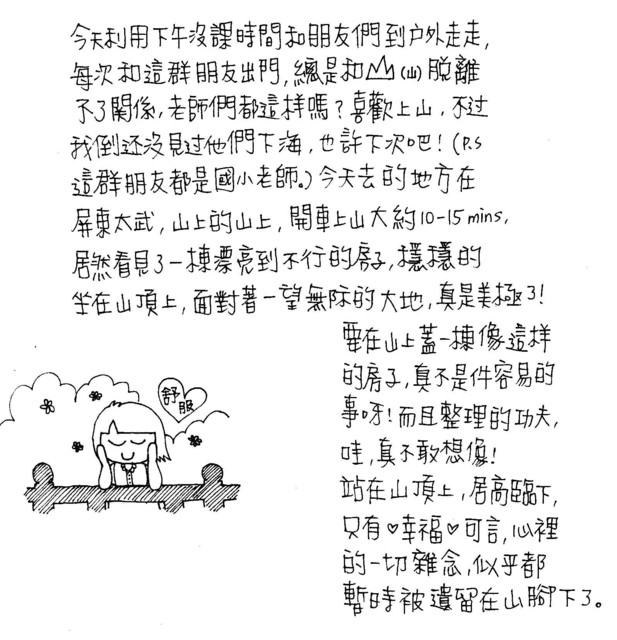 今天利用下午沒課時間和朋友們到户外走走,
每次和這群朋友出門,總是和(山)脫離
不了關係,老師們都這样嗎?喜歡上山,不过
我倒还沒見过他們下海,也許下次吧!(P.S
這群朋友都是國小老師。)今天去的地方在
屏東太武,山上的山上,開車上山大約10-15mins,
居然看見了一棟漂亮到不行的房子,穩穩的
坐在山頂上,面對著一望無際的大地,真是美極了!
要在山上蓋一棟像這样
的房子,真不是件容易的
事呀!而且整理的功夫,
哇,真不敢想像!
站在山頂上,居高臨下,
只有♥幸福♥可言,心裡
的一切雜念,似乎都
暫時被遺留在山腳下了。
舒服